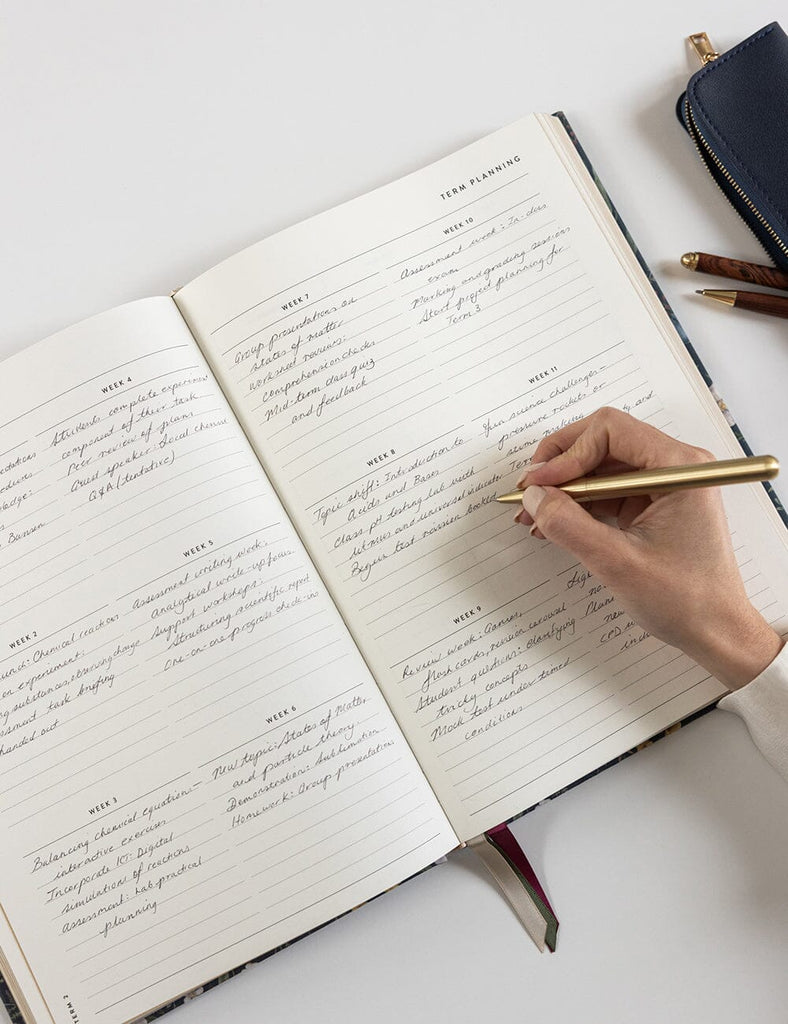 entations
cedures
wledge:
Bunsen
WEEK 2
unch: Chemical reactions
en experiment:
ng substances, observing change
essment task briefing
handed out
WEEK 3
Balancing chemical equations –
interactive exercises
Incorporate ICT: Digital
simulations of reactions
Assessment: Lab practical
planning
TERM 2
WEEK 4
Students complete experiment
component of their task
Peer review of plans
Guest speaker: Local chemist
Q&A (tentative)
WEEK 5
Assessment writing week:
analytical write-up focus
Support workshops:
Structuring scientific report
One-on-one progress check-ins
WEEK 6
New topic: States of Matter
and particle theory
Demonstration: Sublimation
Homework: Group presentation
TERM PLANNING
WEEK 7
Group presentations on
states of matter
Worksheet reviews:
comprehension checks
Mid-term class quiz
and feedback
WEEK 8
Topic shift: Introduction to
Acids and Bases
Class pH testing lab with
litmus and universal indicator
Begin test revision booklet
WEEK 9
Review week: Games,
flash cards, revision carousel
Student questions: clarifying
tricky concepts
Mock test under timed
conditions
WEEK 10
Assessment week: In-class
exam
Marking and grading sessions
Start project planning for
Term 3
WEEK 11
Fun science challenges –
pressure rockets or
slime making
Term
and
Plann
new
CPD